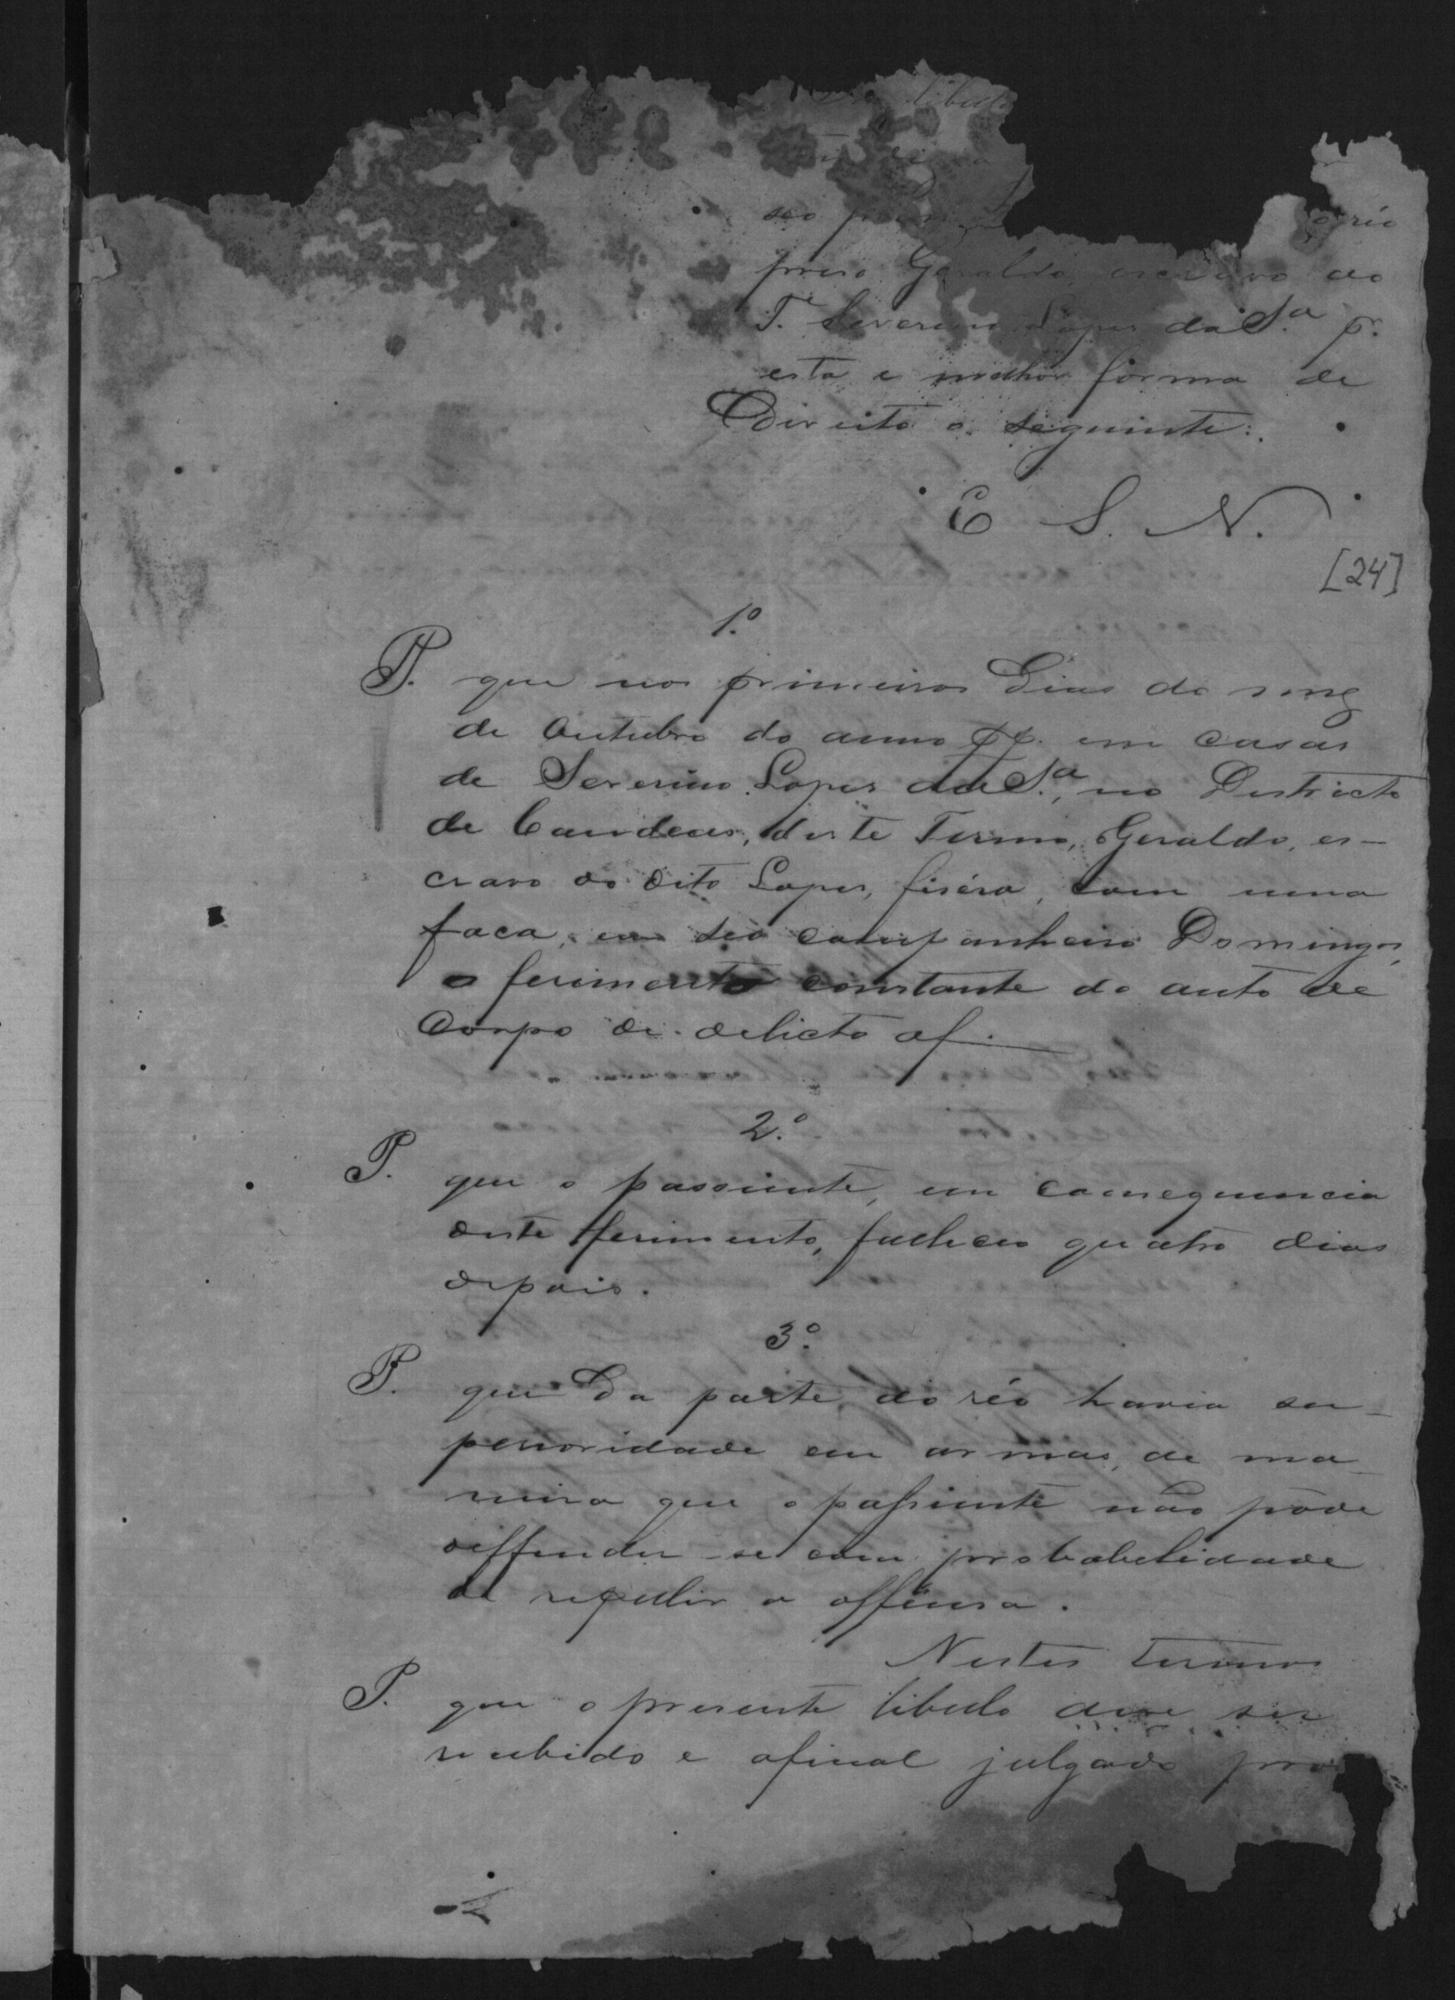 libello
seo o réo
preso Geraldo, escravo do
Te. Severino Lopes da S.a p.r
esta e melhor forma de
Direito o seguinte:.
E S. N.
[24]
1.º
P. que nos primeiros dias do mez
de Outubro do anno pp. em casas
de Severino Lopes da S.a, no Districto
de Candeas, deste Termo, Geraldo, es-
cravo do dito Lopes, fiséra, com uma
faca, em seo companheiro Domingos,
o ferimento constante do auto de
Corpo de delicto af.
2.º
P. que o passiente, em consequencia
deste ferimento, falleceo quatro dias
depois.
3.º
P. que da parte do réo havia su-
perioridade em armas, de ma-
neira que o passiente não pôde
deffender-se com probabelidade
de repelir a offensa.
Nestes termos
P. que o presente libello deve ser
recebido e afinal julgado pro